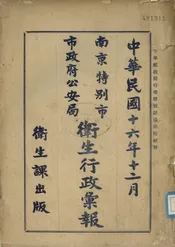 中華民國十六年十二月
南京特别市
市政府公安局
衛生行政彙報
衛生課出版